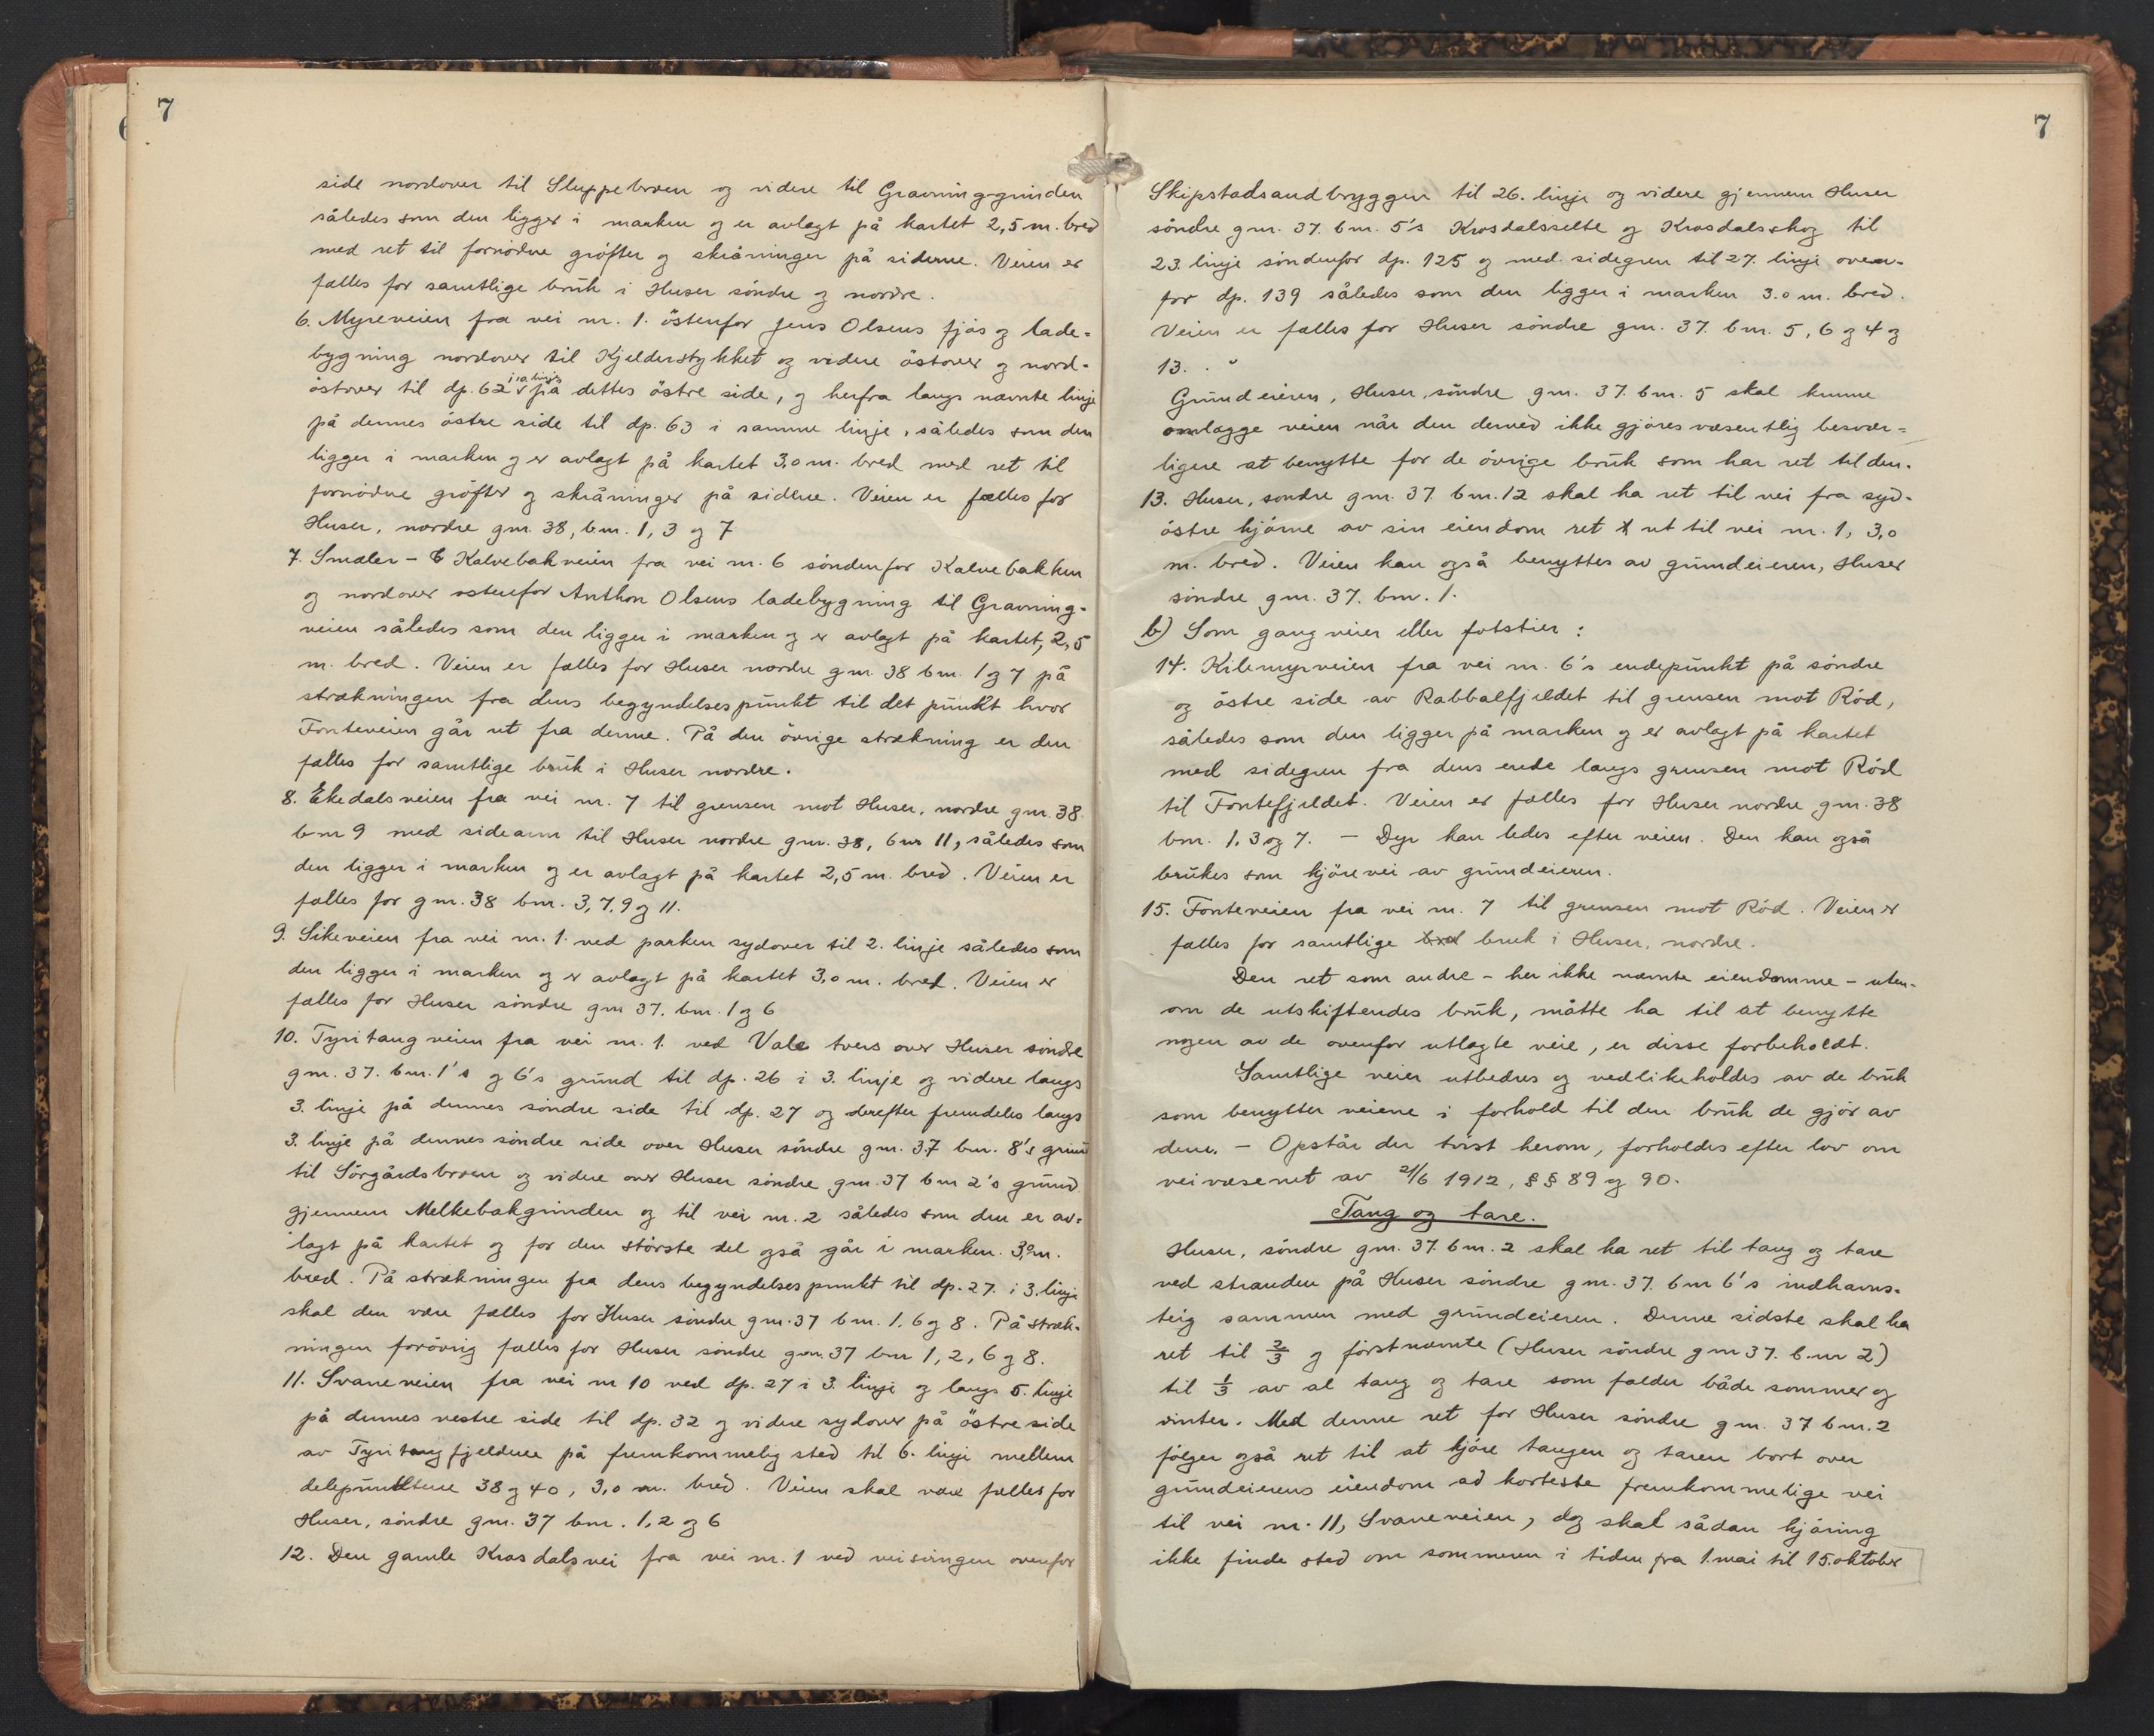 7
side nordover til Sluppebroen og videre til Gravning-grinden
således som den ligger i marken og er avlagt på kartet 2,5 m. bred
med ret til fornödne gröfter og skråninger på siderne. Veien er
fælles for samtlige brük i Huser söndre og nordre.
6. Myreveien fra vei nr. 1. östenfor Jens Olsens fjös og lade-
bygning nordover til Kjelderstykket og videre östover og nord-
östover til dp. 62 i 10. linje på dettes östre side, og herfra langs nævnte linje
på dennes östre side til dp. 63 i samme linje, således som den
ligger i marken og er avlagt på kartet 3,0 m. bred med ret til
fornödne gröfter og skråninger på siderne. Veien er fælles for
Huser, nordre gnr. 38, bnr. 1, 3 og 7
7. Smaler - Kalvebakveien fra vei nr. 6 söndenfor Kalvebakken
og nordover ostenfor Anthon Olsens ladebygning til Gravning-
veien således som den ligger i marken og er avlagt på kartet, 2,5
m. bred. Veien er fælles for Huser nordre gnr. 38 bnr. 1 og 7 på
strækningen fra dens begyndelsespünkt til det pünkt hvor
Fonteveien går ut fra denne. På den övrige strækning er den
fælles for samtlige brük i Huser nordre.
8. Ekedalsveien fra vei nr. 7 til grensen mot Huser, nordre gnr. 38
bnr 9 med sidearm til Huser nordre gnr. 38, bnr 11, således som
den ligger i marken og er avlagt på kartet 2,5 m. bred. Veien er
fælles for gnr. 38 bnr. 3, 7, 9 og 11.
9. Sikeveien fra vei nr. 1. ved parken sydover til 2. linje således som
den ligger i marken og er avlagt på kartet 3,0 m. bred. Veien er
fælles for Huser söndre gnr 37. bnr. 1 og 6
10. Tyritangveien fra vei nr. 1. ved Vale tvers over Huser söndre
gnr. 37. bnr. 1's og 6's gründ til dp. 26 i 3. linje og videre langs
3. linje på dennes söndre side til dp. 27 og derefter fremdeles langs
3. linje på dennes söndre side over Huser söndre gnr. 37 bnr. 8's grün
til Sörgårdsbroen og videre over Huser söndre gnr. 37 bnr 2's gründ
gjennem Melkebakgrinden og til vei nr. 2 således som den er av-
lagt på kartet og for den störste del også går i marken. 3,0 m.
bred. På strækningen fra dens begyndelsespunkt til dp. 27. i 3. linje
skal den være fælles for Huser söndre gnr. 37 bnr. 1. 6 og 8. På stræk-
ningen forövrig fælles for Huser söndre gnr. 37 bnr 1, 2, 6 og 8.
11. Svaneveien fra vei nr 10 ved dp. 27 i 3. linje og langs 5. linje
på dennes vestre side til dp. 32 og videre sydover på östre side
av Tyritangfjeldene på fremkommelig sted til 6. linje mellem
delepünktene 38 og 40, 3,0 m. bred. Veien skal være fælles for
Huser, söndre gnr. 37 bnr. 1, 2 og 6
12. Den gamle Krosdalsvei fra vei nr. 1 ved veisvingen ovenfor
7
Skipstadsandbryggen til 26. linje og videre gjennem Huser
söndre gnr. 37. bnr. 5's Krosdalsselte og Krosdalsskog til
23. linje söndenfor dp. 125 og med sidegren til 27. linje oven-
for dp. 139 således som den ligger i marken 3.0 m. bred.
Veien er fælles for Huser söndre gnr. 37. bnr. 5, 6 og 4 og
13.
Gründeieren, Huser, söndre gnr. 37. bnr. 5 skal kunne
omlægge veien når den derved ikke gjöres væsentlig besvær-
ligere at benytte for de övrige brük som har ret til den.
13. Huser, söndre gnr. 37. bnr. 12 skal ha ret til vei fra syd-
östre hjörne av sin eiendom ret ut til vei nr. 1, 3,0
m. bred. Veien kan også benyttes av gründeieren, Huser
söndre gnr. 37. bnr. 1.
b) Som gangveier eller fotstier:
14. Kilemyrveien fra vei nr. 6's endepünkt på söndre
og östre side av Rabbalfjeldet til grensen mot Röd,
således som den ligger på marken og er avlagt på kartet
med sidegren fra dens ende langs grensen mot Röd
til Fontefjeldet. Veien er fælles for Huser nordre gnr. 38
bnr. 1, 3 og 7. - Dyr kan ledes efter veien. Den kan også
brükes som kjörevei av gründeieren.
15. Fonteveien fra vei nr. 7 til grensen mot Röd. Veien er
fælles for samtlige bruk i Huser, nordre.
Den ret som andre - her ikke nævnte eiendomme - uten-
om de utskiftendes brük, måtte ha til at benytte
nogen av de ovenfor utlagte veie, er disse forbeholdt.
Samtlige veier utbedres og vedlikeholdes av de brük
som benytter veiene i forhold til den brük de gjör av
dem. - Opstår der tvist herom, forholdes efter lov om
veivæsenet av 21/6 1912, §§ 89 og 90.
Tang og tare.
Huser, söndre gnr. 37. bnr. 2 skal ha ret til tang og tare
ved stranden på Huser söndre gnr. 37. bnr 6's indhavns-
teig sammen med gründeieren. Denne sidste skal ha
ret til 2/3 og förstnævnte (Huser söndre gnr 37. b.nr 2)
til 1/3 av al tang og tare som falder både sommer og
vinter. Med denne ret for Huser söndre gnr. 37 bnr. 2
fölger også ret til at kjöre tangen og taren bort over
gründeierens eiendom ad korteste fremkommelige vei
til vei nr. 11, Svaneveien, dog skal sådan kjöring
ikke finde sted om sommeren i tiden fra 1. mai til 15. oktober